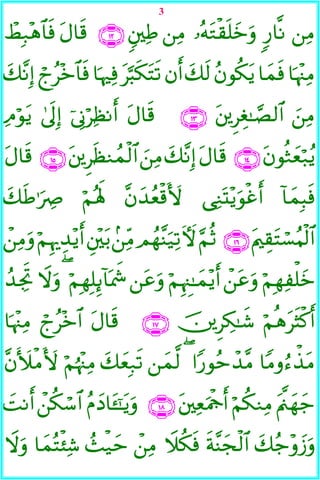 3
مِن نَّارٍ وَخَلَقْتَهُۥ مِن طِينٍ ﴿١٢﴾ قَالَ فَٱهْبِطْ
مِنْهَا فَمَا يَكُونُ لَكَ أَن تَتَكَبَّرَ فِيهَا فَٱخْرُجْ إِنَّكَ
مِنَ ٱلصَّـٰغِرِينَ ﴿١٣﴾ قَالَ أَنظِرْنِىٓ إِلَىٰ يَوْمِ
يُبْعَثُونَ ﴿١٤﴾ قَالَ إِنَّكَ مِنَ ٱلْمُنظَرِينَ ﴿١٥﴾ قَالَ
فَبِمَآ أَغْوَيْتَنِى لَأَقْعُدَنَّ لَهُمْ صِرَٰطَكَ
ٱلْمُسْتَقِيمَ ﴿١٦﴾ ثُمَّ لَـَٔاتِيَنَّهُم مِّنۢ بَيْنِ أَيْدِيهِمْ وَمِنْ
خَلْفِهِمْ وَعَنْ أَيْمَـٰنِهِمْ وَعَن شَمَآئِلِهِمْ ۖ وَلَا تَجِدُ
أَكْثَرَهُمْ شَـٰكِرِينَ ﴿١٧﴾ قَالَ ٱخْرُجْ مِنْهَا
مَذْءُومًا مَّدْحُورًا ۖ لَّمَن تَبِعَكَ مِنْهُمْ لَأَمْلَأَنَّ
جَهَنَّمَ مِنكُمْ أَجْمَعِينَ ﴿١٨﴾ وَيَـٰٓـَٔادَمُ ٱسْكُنْ أَنتَ
وَزَوْجُكَ ٱلْجَنَّةَ فَكُلَا مِنْ حَيْثُ شِئْتُمَا وَلَا